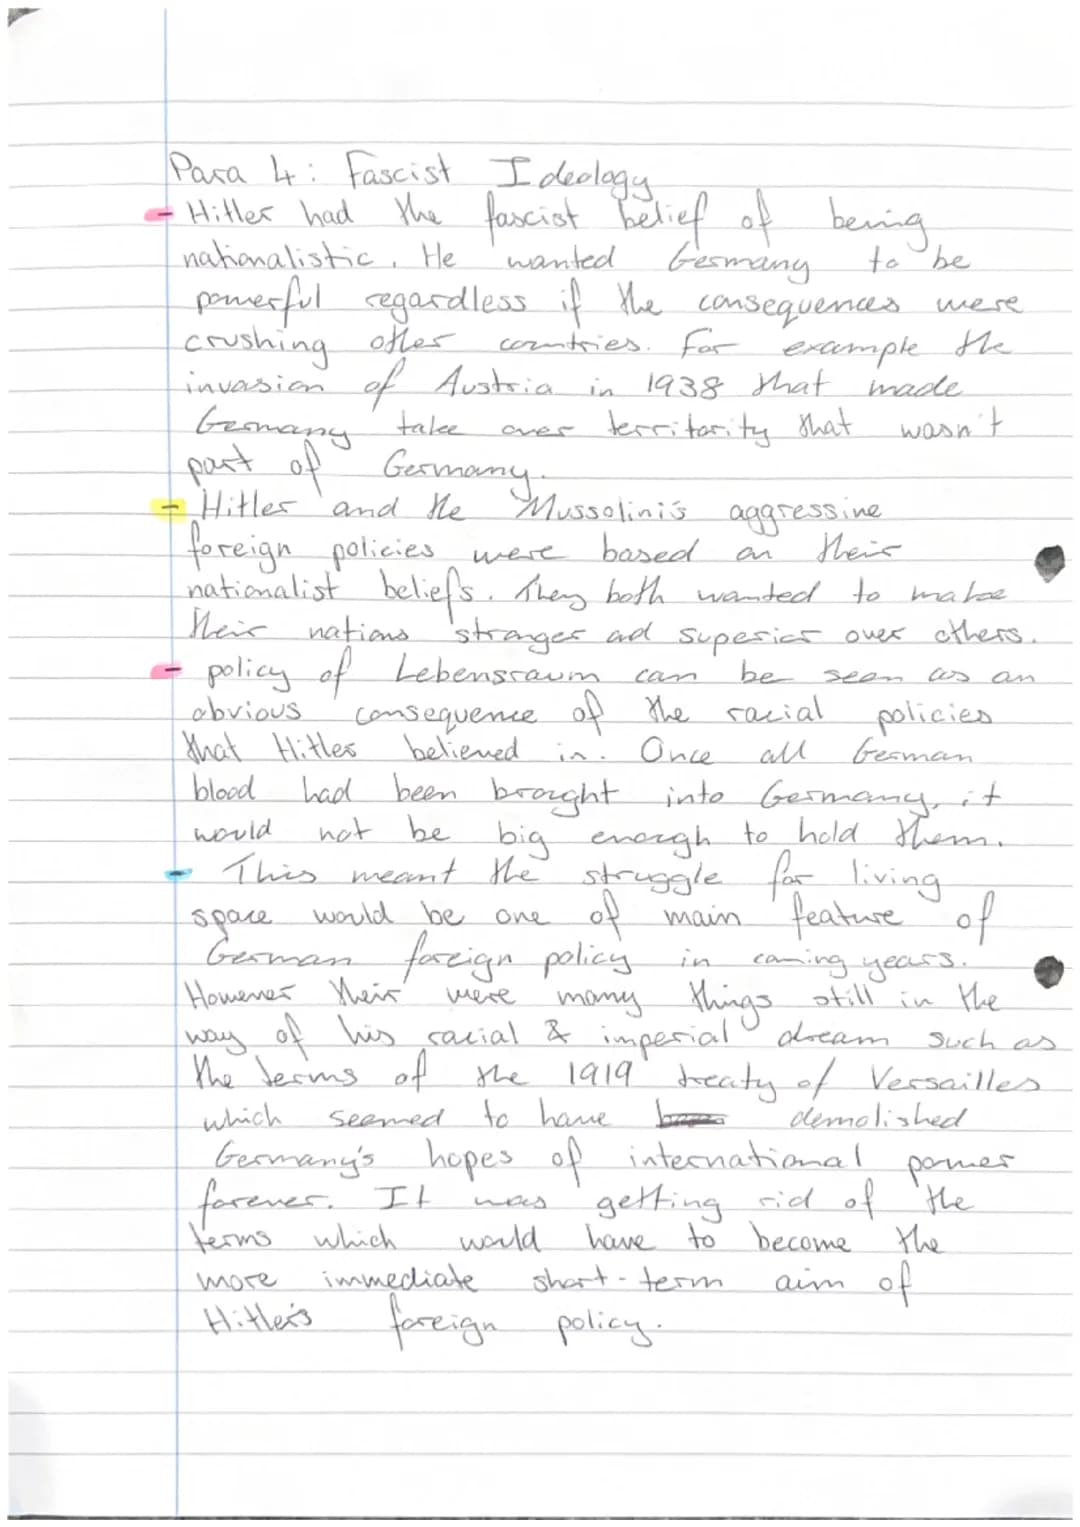 Para 4: Fascist Ideology
- Hitler had the fascist belief of being
nationalistic. He wanted Germany to be
powerful regardless if the consequences were
crushing other countries. For example the
invasion of Austria in 1938 that made
Germany take over territority that wasn't
part of Germany.
- Hitler and the Mussolini's aggressive
foreign policies were based on their
nationalist beliefs. They both wanted to make
their nations stronger ad superior over others.
- policy of Lebensraum can be seen as an
obvious consequence of the racial policies
that Hitler believed in. Once all German
blood had been brought into Germany, it
would not be big enough to hold them.
- This meant the struggle for living
space would be one of main feature of
German foreign policy in coming years.
However their were many things still in the
way of his racial & imperial dream such as
the terms of the 1919 treaty of Versailles
which seemed to have demolished
Germany's hopes of international power
forever. It was getting rid of the
terms which would have to become the
more immediate short-term aim of
Hitler's foreign policy.